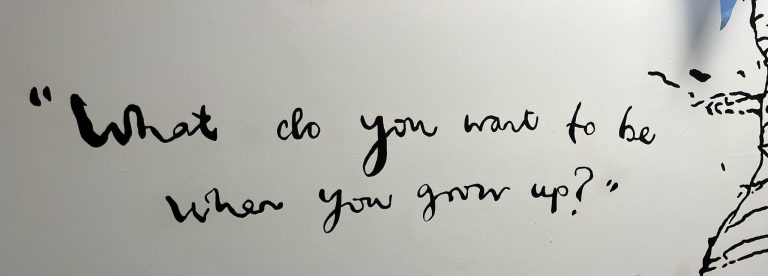 "What do you want to be
when you grow up?"